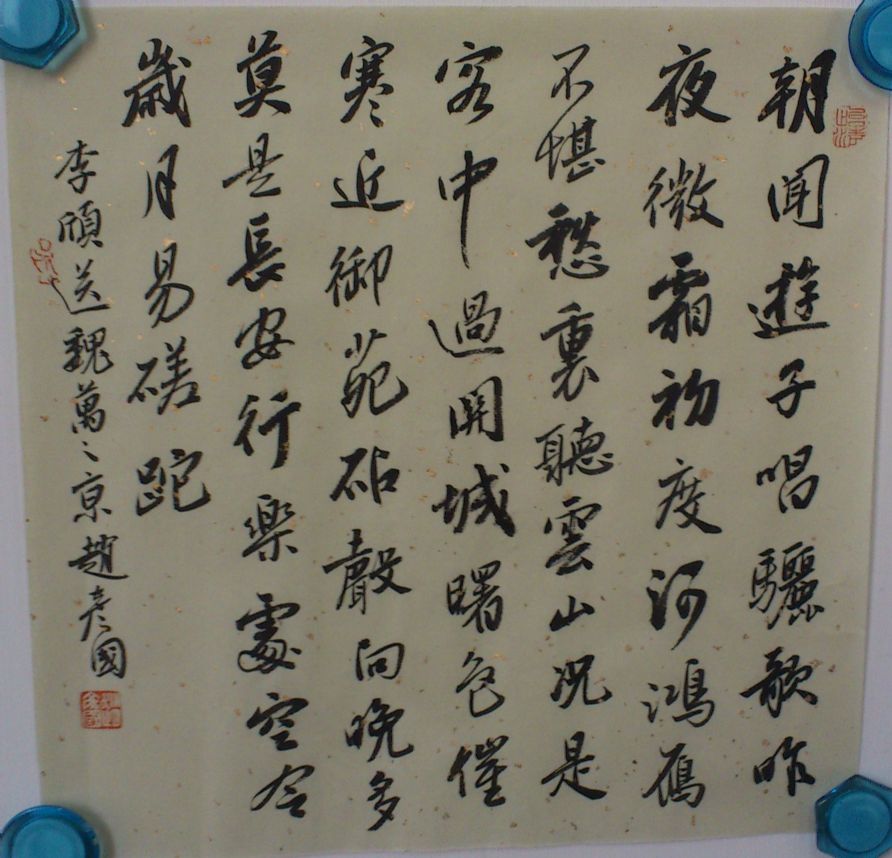 朝聞遊子唱驪歌昨
夜微霜初度河鴻雁
不堪愁裏聽雲山況是
客中過關城曙色催
寒近御苑砧聲向晚多
莫是長安行樂處空令
歲月易磋跎
李頎送魏萬之京趙彥國